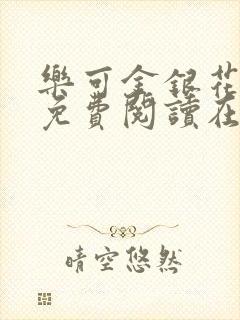 樂可金銀花
免費閱讀在
晴空悠然